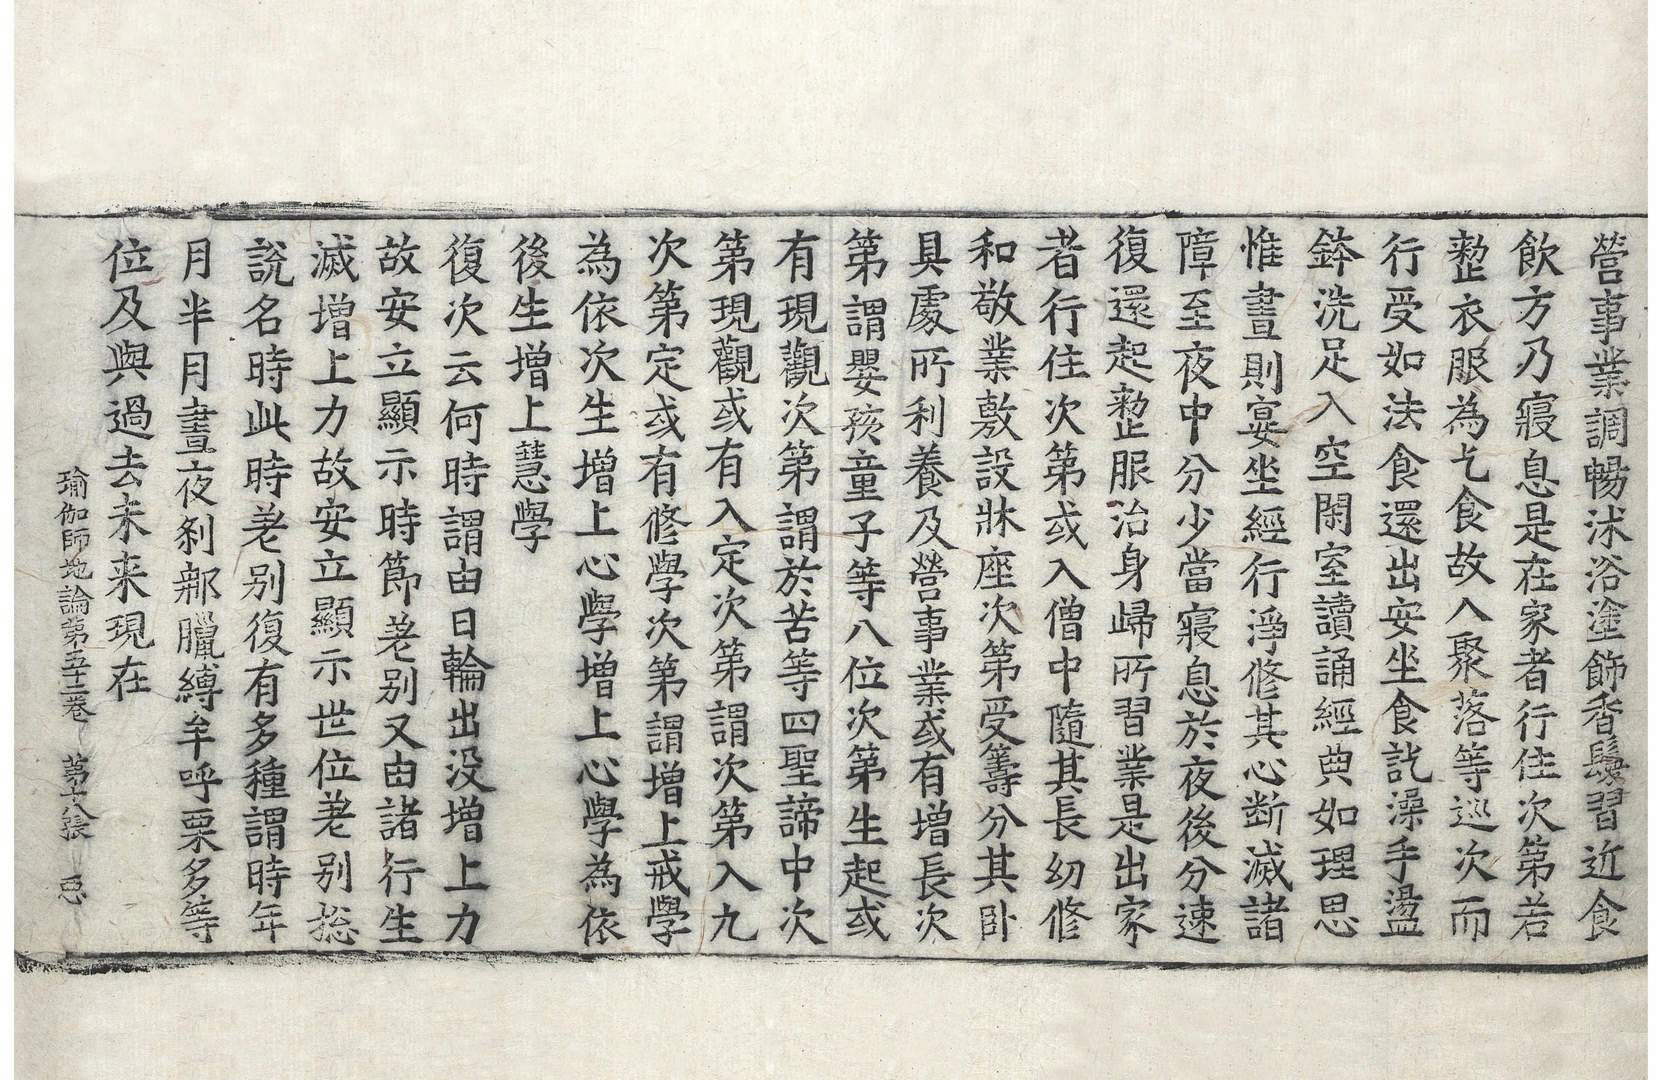 營事業調暢沐浴塗飾香鬘習近食
飲方乃寢息是在家者行住次第若
整衣服為乞食故入聚落等巡次而
行受如法食還出安坐食訖澡手盪
鉢洗足入空閑室讀誦經典如理思
惟晝則宴坐經行淨修其心斷滅諸
障至夜中分少當寢息於夜後分速
復還起整服治身歸所習業是出家
者行住次第或入僧中隨其長幼修
和敬業敷設牀座次第受籌分其卧
具處所利養及營事業或有增長次
第謂嬰孩童子等八位次第生起或
有現觀次第謂於苦等四聖諦中次
第現觀或有入定次第謂次第入九
次第定或有修學次第謂增上戒學
為依次生增上心學增上心學為依
後生增上慧學
復次云何時謂由日輪出没增上力
故安立顯示時節差别又由諸行生
滅增上力故安立顯示世位差别揔
說名時此時差别復有多種謂時年
月半月晝夜剎那臘縛牟呼栗多等
位及與過去未来現在
瑜伽師地論第五十二卷 第十八張 惡